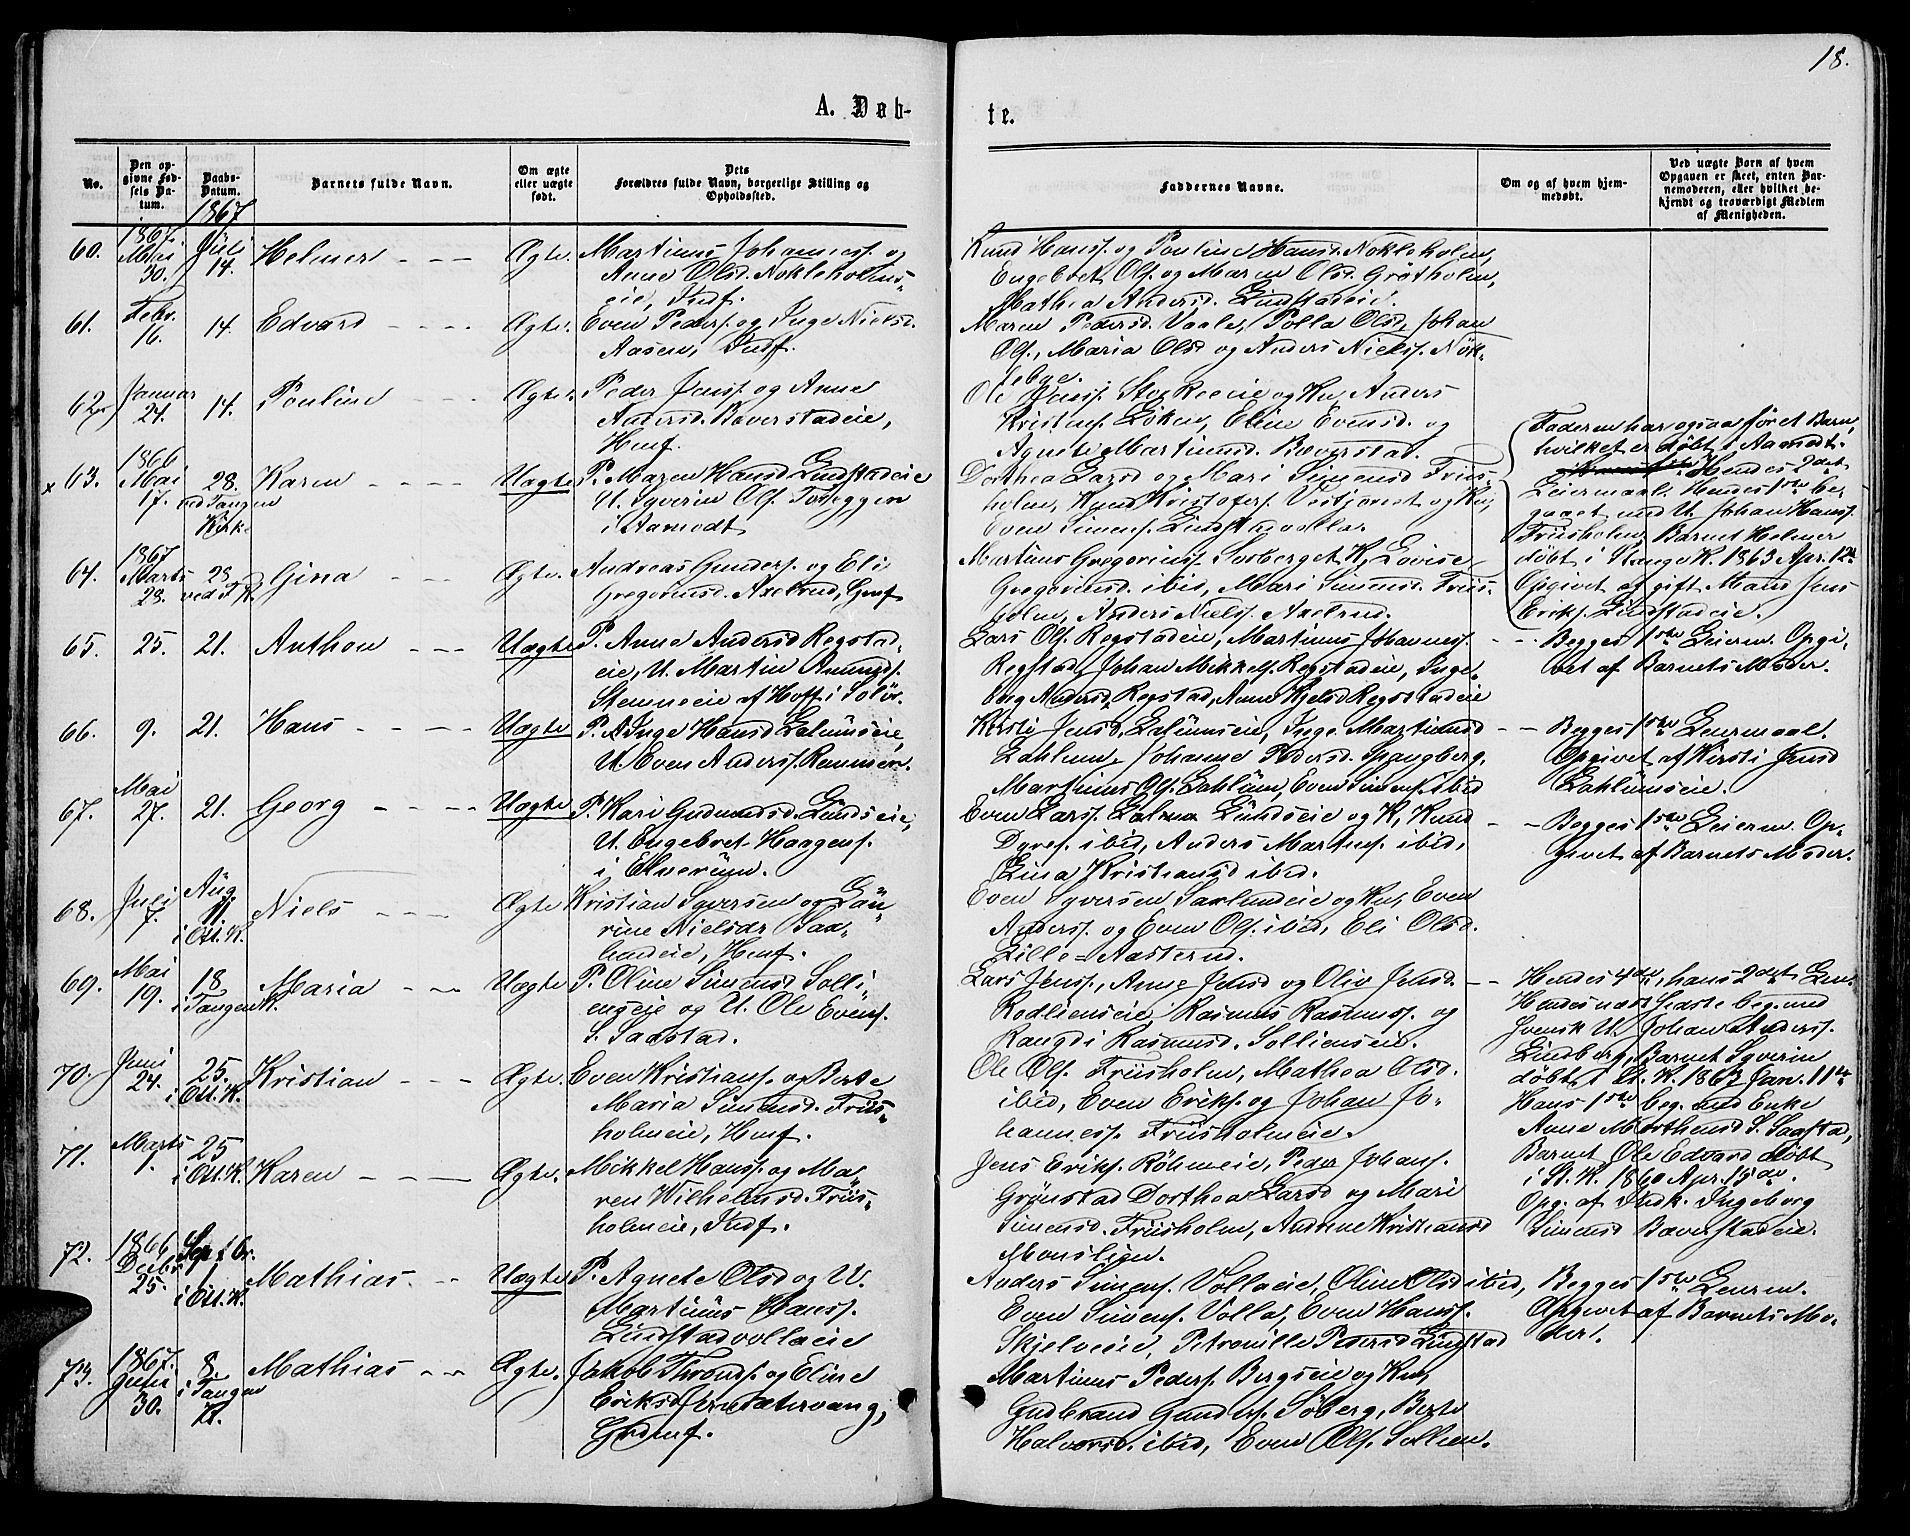 18.
A. Døb-
te.
No.
Den op-
givne Fød-
sels Da-
tum.
Daabs-
Datum.
Barnets fulde Navn.
Om ægte
eller uægte
født.
Dets
Forældres fulde Navn, borgerlige Stilling og
Opholdssted.
Faddernes Navne.
Om og af hvem hjem-
medøbt.
Ved uægte Børn af hvem
Opgaven er skeet, enten Bar-
nemoderen, eller hvilket be-
kjendt og troværdigt Medlem
af Menigheden.
1867
60.
1867.
Mai
30.
Juli
14.
Helmer
Ægte.
Martinus Johanness. og
Anne Olsd. Nokleholms-
eie, Indf.
Knud Hanss. og Pouline Hansd. Nokleholm,
Engebret Ols. og Maren Olsd. Grøtholm,
Mathea Andersd. Lindstadeie.
61.
Febr.
16.
14.
Edvard
Ægte.
Even Peders. og Inge Nielsd.
Aasen, Indf.
Maren Pedersd. Vaale, Polla Olsd., Johan
Ols., Maria Olsd og Anders Nielss. Nök-
lebye.
62.
Januar
24.
14.
Pouline
Ægte.
Peder Jenss. og Anne
Andersd. Bæverstadeie,
Henf.
Ole Jenss. Storkeeie og Ku, Anders
Kristens. Löken, Eline Evensd. og
Agnete Martinusd. Bæverstad.
x 63.
1866
Mai
17.
28.
ved Tangen
Kirke
Karen
Uægte
P. Maren Hansd Lindstadeie
U. Syverin Ols. Toseggen
i Aamodt
Dorthea Larsd og Mari Simensd Friis-
holm, Knud Kristofers. Vestjernet og Ku,
Even Simens. Lindstadvolla.
Faderen har ogsaa føret Barn,
hvilket er døbt i Aamodt.
Hendes 2det
Leiermaal. Hendes 1ste be-
gaaet med U. Johan Hanss.
Friisholm, Barnet Helmer
døbt i Stange K. 1863 Apr. 12te
Opgivet af gift Mand Jens
Eriks. Lindstadeie.
64.
1867.
Marts
28.
28
ved T. K.
Gina
Ægte.
Andreas Gunders. og Eli
Gregoriusd. Axelrud, Henf
Martinus Gregoriuss. Sorberget K, Lovise
Gregoriusd. ibid, Mari Simensd. Friis-
holm, Anders Nielss. Axelrud.
65.
25.
21.
Anthon
Uægte
P. Anne Andersd Regstad-
eie, U. Martin Amunds.
Stemmeeie af Hoff i Solör.
Lars Ols. Regstadeie, Martinus Johanness.
Regstad, Johan Mikkels. Regstadeie, Inge-
borg Andersd. Regstad, Anne Kjelsd Regstadeie
Begges 1ste Leierm. Opgi-
vet af Barnets Moder.
66.
9.
21.
Hans
Uægte
P. Inge Hansd Lalumseie,
U. Even Anderss. Rommen.
Kirsti Jensd. Lalumseie, Inge Martinusd
Lahlum, Johanne Pedersd. Spangberg,
Martinus Ols. Lahlum, Even Simens. ibid
Begges 1ste Leiermaal.
Opgivet af Kirsti Jensd
Lahlumseie.
67.
Mai
27.
21.
Georg
Uægte
P. Kari Gudmundsd. Lundseie,
U. Engebret Haagens.
i Elverum.
Even Larss. Lalum Lundseie og K, Knud
Dyres. ibid, Anders Martins. ibid,
Lina Kristiansd ibid.
Begges 1ste Leierm. Op-
givet af Barnets Moder.
68.
Juli
7.
Aug.
11.
i Ott. K.
Niels
Ægte
Kristian Syversen og Lau-
rine Nielsdr Sax-
lundeie, Henf.
Even Syversen Saxlundeie og Ku, Even
Anderss. og Even Ols. ibid, Eli Olsd.
Lille-Aasterud.
69.
Mai
19.
18
i Tangen K.
Maria
Uægte
P. Oline Simensd Solli-
enseie og U. Ole Evens.
S. Saxstad.
Lars Jenss., Anne Jensd og Oliv Jensd.
Rodlienseie, Rasmus Rasmuss. og
Rangdi Rasmusd. Solliensein.
Hendes 4de, hans 2det Lm.
Hendes næst sidste beg. med
svensk U. Johan Anderss.
Lindberg, Barnet Syverin
døbt i St. K. 1863 Jan. 11te
Hans 1ste beg. med Enke
Anne Morthensd S. Saxstad,
Barnet Ole Edvard døbt
i St. K. 1860 Apr. 15de.
Opg. af Indk. Ingeborg
Simensd Bæverstadeie.
70.
Juni
24.
25.
i Ott. K.
Kristian
Ægte.
Even Kristians. og Berte
Maria Simensd. Friis-
holmeie, Henf.
Ole Ols. Friisholm, Mathea Olsd.
ibid, Even Eriks. og Johan Jo-
hanness. Friisholmeie.
71.
Marts
1.
25
i Ott. K.
Karen
Ægte.
Mikkel Hanss. og Ma-
ren Wilhelmsd. Friis-
holmeie, Indf.
Jens Eriks. Röhmeie, Peder Johans.
Grönstad, Dorthea Larsd og Mari
Simensd. Friisholm, Andrine Kristiansd
Monslien.
72.
1866
Decbr
25.
Septbr.
1
i Ott. K.
Mathias.
Uægte
P. Agnete Olsd og U.
Martinus Hanss.
Lindstadvollaeie
Anders Simens. Vollaeie, Oline Olsd ibid,
Even Simens. Volla, Even Hanss.
Skjelveeie, Petronille Pedersd Lindstad
Begges 1ste Leierm.
Opgivet af Barnets Mo-
der.
73.
1867.
Juni
30.
8
i Tangen
K.
Mathias
Ægte.
Jakob Thronds. og Eline
Eriksd Jernsætervang,
Grdm.
Martinus Peders. Bergseie og Ku,
Gudbrand Gunders. Söberg, Berte
Halvorsd. ibid, Even Ols. Sollien.